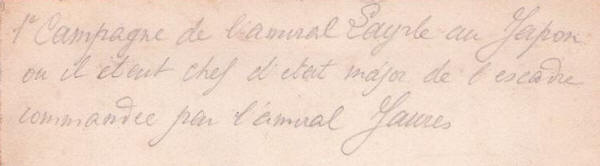 1e Campagne de l'amiral Layrle au Japon
ou il etait chef d'etat major de l'escadre
commandee par l'amiral Jaures